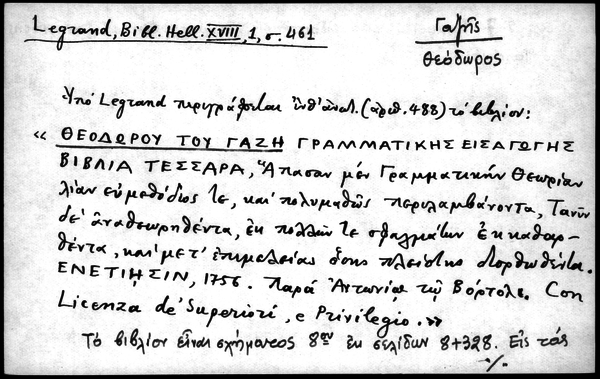 Legrand, Bibl. Hell. XVIII, 1, σ. 461
Γαζῆς
Θεόδωρος
Ὑπό Legrand περιγράφεται ἐνθ' ἀνωτ. (ἀριθ. 488) τό βιβλίον:
« ΘΕΟΔΩΡΟΥ ΤΟΥ ΓΑΖΗ ΓΡΑΜΜΑΤΙΚΗΣ ΕΙΣΑΓΩΓΗΣ
ΒΙΒΛΙΑ ΤΕΣΣΑΡΑ, Ἅπασαν μέν Γραμματικήν Θεωρίαν
λίαν εὐμεθόδως τε, καί πολυμαθῶς περιλαμβάνοντα, Τανῦν
δε' ἀναθεωρηθέντα, ἐκ πολλῶν τε σφαλμάτων ἐκκαθαρ-
θέντα, καί μετ' ἐπιμελείας ὅσης πλείστης διορθωθέντα.
ΕΝΕΤΙΗΣΙΝ, 1756. Παρά Ἀντωνίῳ τῷ Βόρτολι. Con
Licenza de' Superiori, e Privilegio. »
Τό βιβλίον εἶναι σχήματος 8ου ἐκ σελίδων 8+328. Εἰς τάς
./.